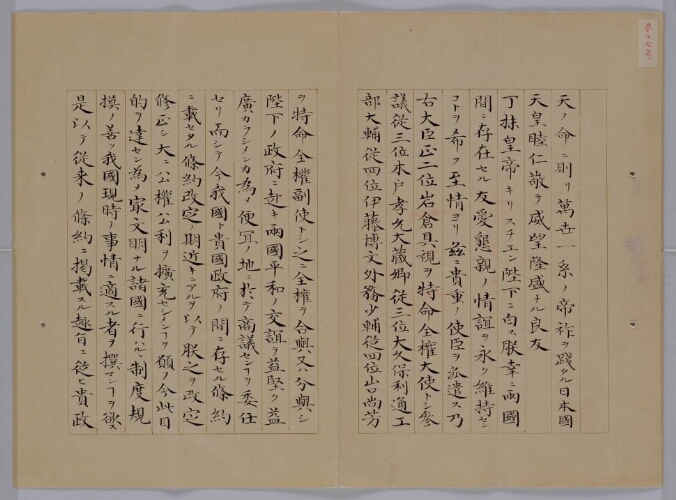 第十七号
天ノ命ニ則リ萬世一系ノ帝祚ヲ践タル日本國
天皇睦仁敬テ威望隆盛ナル良友
丁抹皇帝キリスチエン陛下ニ白ス朕幸ニ兩國
間ニ存在セル友愛懇親ノ情誼ヲ永ク維持セン
コトヲ希フ至情ヨリ茲ニ貴重ノ使臣ヲ派遣ス乃
右大臣正二位岩倉具視ヲ特命全權大使トシ參
議從三位木戸孝允大藏卿從三位大久保利通工
部大輔從四位伊藤博文外務少輔從四位山口尚芳
ヲ特命全權副使トシ之ニ全權ヲ合與又ハ分與シ
陛下ノ政府ニ赴キ兩國平和ノ交誼ヲ益堅ク益
廣カラシメンカ為メ便宜ノ地ニ於テ商議セシヿヲ委任
セリ而シテ今我國ト貴國政府ノ間ニ存セル條約
ニ載セタル條約改定ノ期近キニアルヲ以テ朕之ヲ改定
修正シ大ニ公權公利ヲ擴充セシメンヿヲ願フ今此目
的ヲ達セン為メ最文明ナル諸國ニ行ハルヽ制度規
摸ノ善ク我國現時ノ事情ニ適スル者ヲ撰マンヿヲ欲ス
是以テ從来ノ條約ニ掲載スル趣旨ニ從ヒ貴政